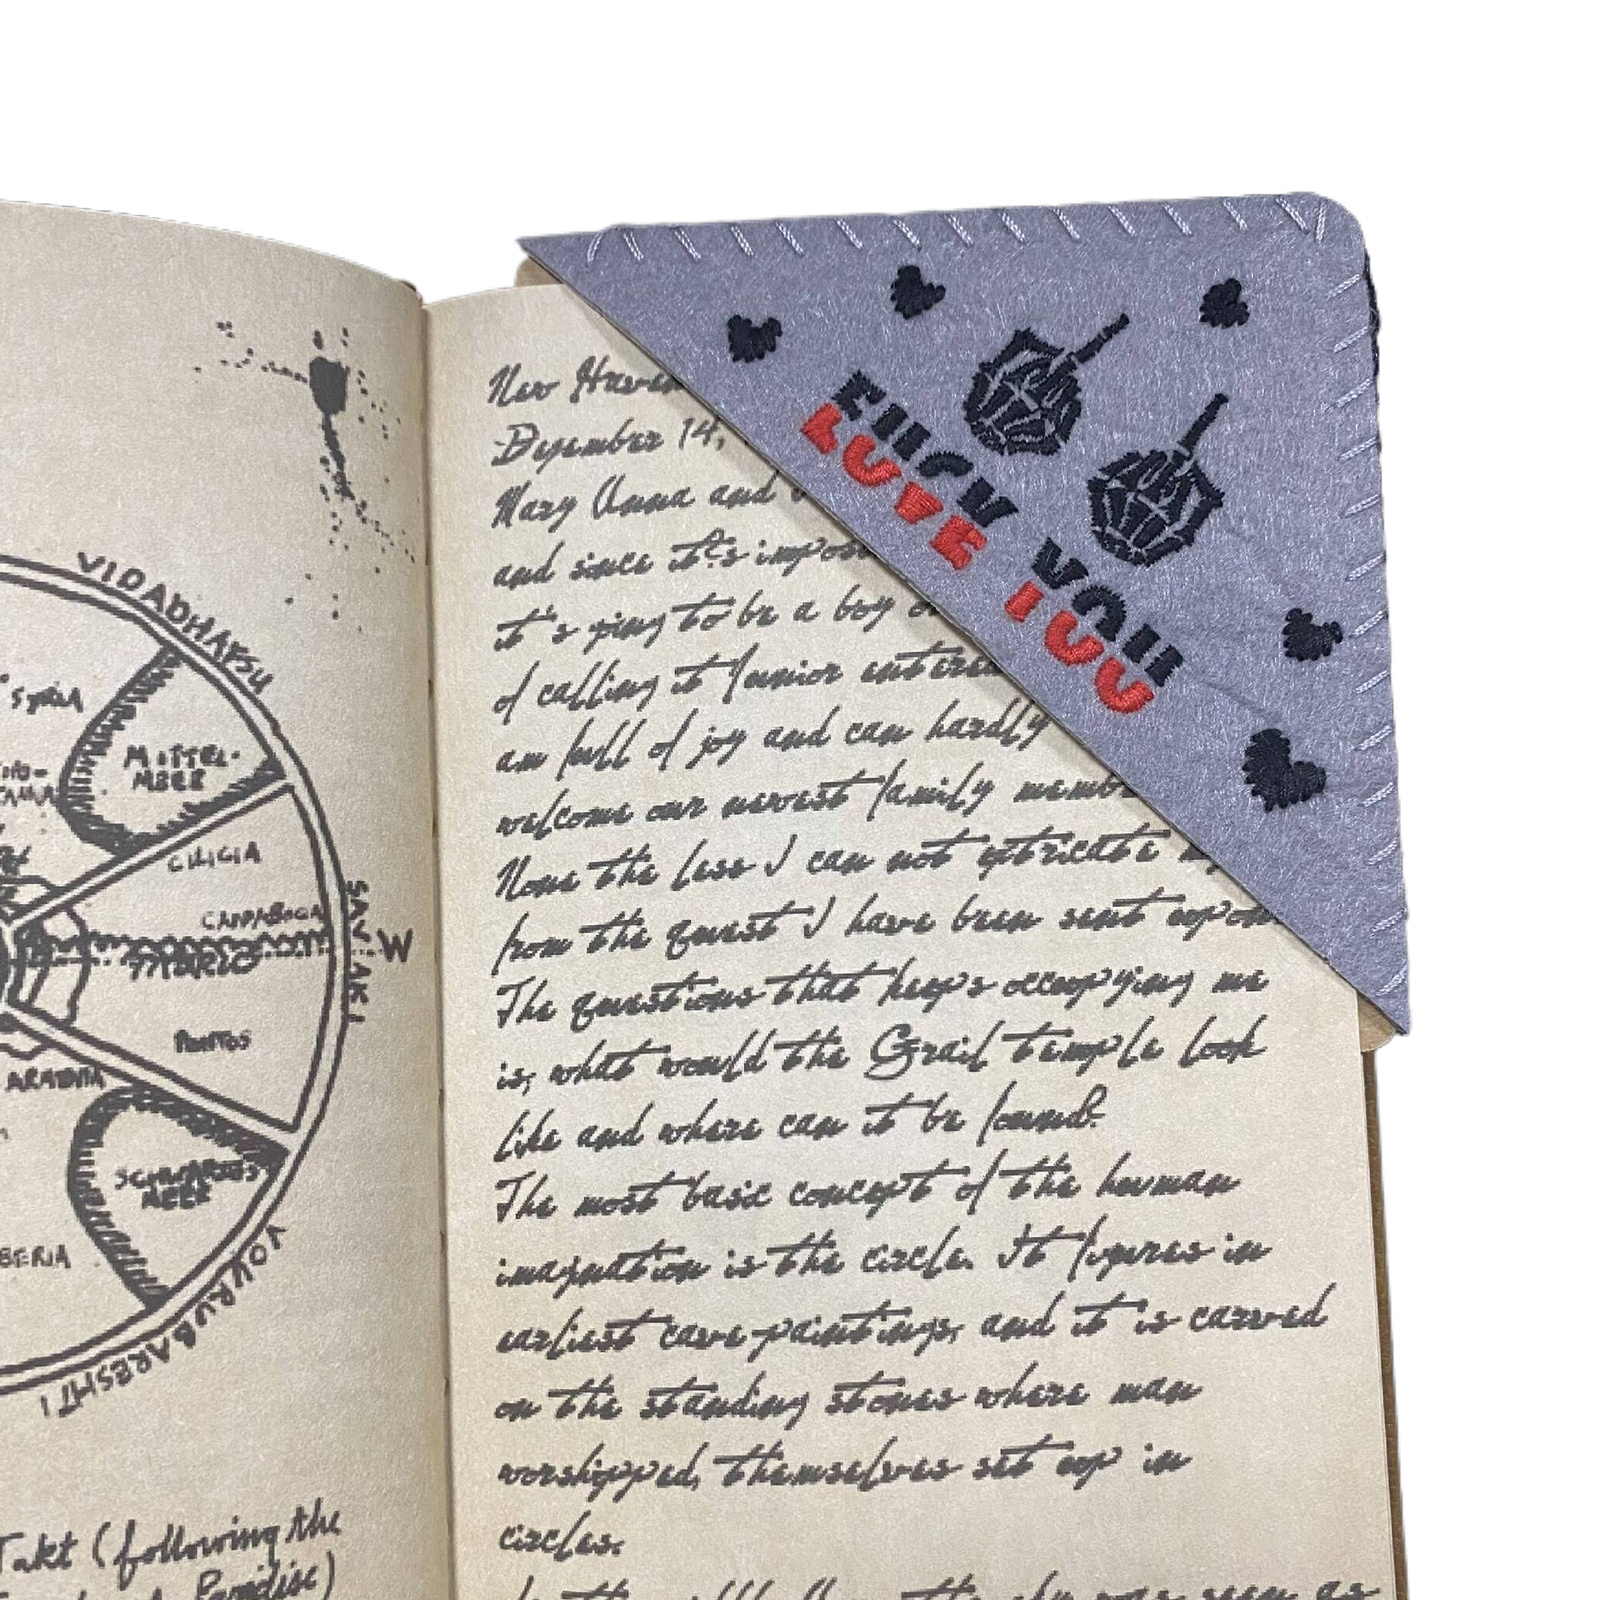 VIDADHAFSU
SYRIA
MITTEL-
MEER
CILICIA
W
PONTOS
ARMENIA
MEER
BERIA
VOURUBARESHTI
Takt (following the
Paradise)
New Haven
December 14,
Mary Anna and
and since it's
it's going to be a boy
of calling it Junior
am full of joy and can hardly
welcome our newest family
None the less I can not extricate
from the quest I have been sent upon
The questions that keeps occupying me
is, what would the Grail temple look
like and where can it be found?
The most basic concept of the human
imagination is the circle. It figures in
earliest cave-paintings, and it is carved
on the standing stones where man
worshipped, themselves set up in
circles.
the sky was seen as
FUCK YOU
LOVE YOU